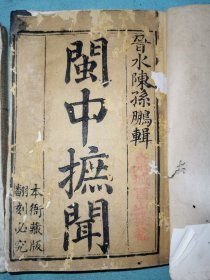 晉水陳孫鵬輯
閩中摭聞
本衙藏版
翻刻必究